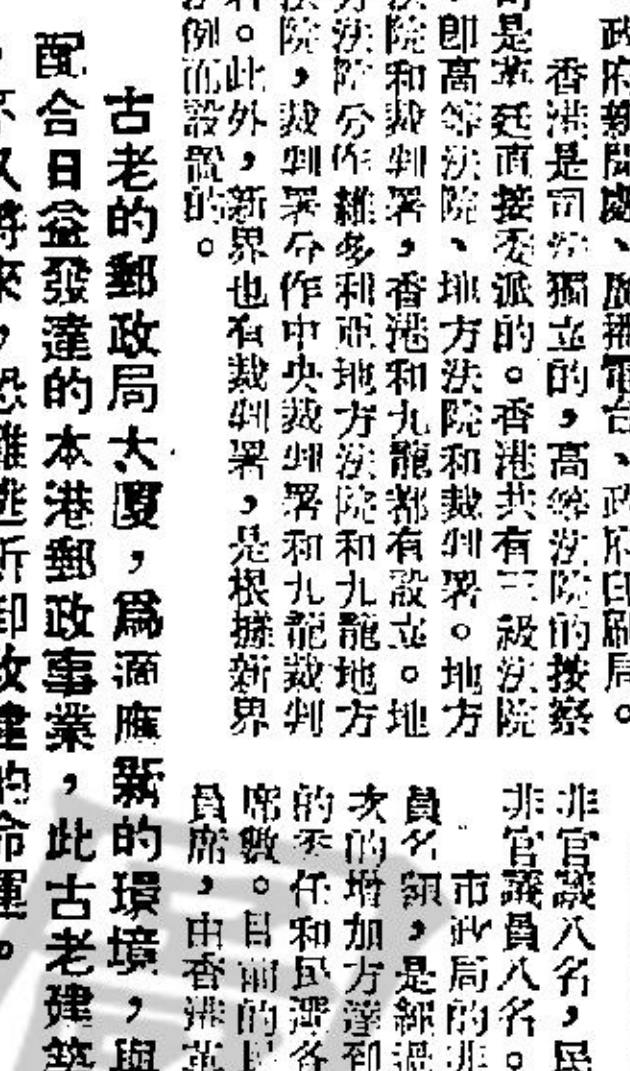 政府新聞處、廣播電台、政府印刷局。
香港是司法獨立的，高等法院的按察
司是英廷直接委派的。香港共有三級法院
，即高等法院、地方法院和裁判署。地方
法院和裁判署，香港和九龍都有設立。地
方法院分作維多利亞地方法院和九龍地方
法院，裁判署分作中央裁判署和九龍裁判
署。此外，新界也有裁判署，是根據新界
法例而設的。
非官議八名，民
非官議員八名。
市政局的非
員名額，是經過
次的增加方達到
的委任和民選各
席數。目前的民
員席，由香港英
古老的郵政局大廈，爲適應新的環境，與
配合日益發達的本港郵政事業，此古老建築
，不久將來，恐難逃拆卸改建的命運。